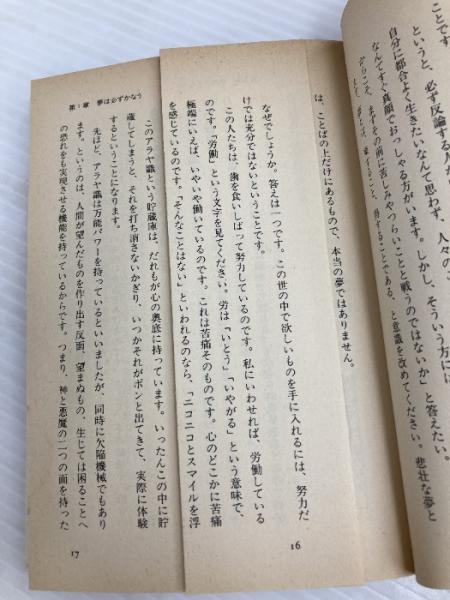 ことです。
というと、必ず反論する人が
自分に都合よく生きたいなんて思わず、人々の
なんてすぐ真顔でおっしゃる方がいます。しかし、そういう方には
まずその前に苦しみやつらいことと戦うのではないか」と答えたい。
得することである、と意識を改めてください。悲壮な夢と
は、ことばの上だけにあるもので、本当の夢ではありません。
なぜでしょうか。答えは一つです。この世の中で欲しいものを手に入れるには、努力だ
けでは充分ではないということです。
この人たちは、歯を食いしばって努力しているのです。私にいわせれば、労働している
のです。「労働」という文字を見てください。労は「いとう」「いやがる」という意味で、
極端にいえば、いやいや働いているのです。これは苦痛そのものです。心のどこかに苦痛
を感じているのです。「そんなことはない」といわれるのなら、「ニコニコとスマイルを浮
16
第1章 夢は必ずかなう
このアラヤ識という貯蔵庫は、だれもが心の奥底に持っています。いったんこの中に貯
蔵してしまうと、それを打ち消さないかぎり、いつかそれがポンと出てきて、実際に体験
するということになります。
先ほど、アラヤ識は万能パワーを持っているといいましたが、同時に欠陥機械でもあり
ます。というのは、人間が望んだものを作り出す反面、望まぬもの、生じては困ることへ
の恐れをも実現させる機能を持っているからです。つまり、神と悪魔の二つの面を持った
17